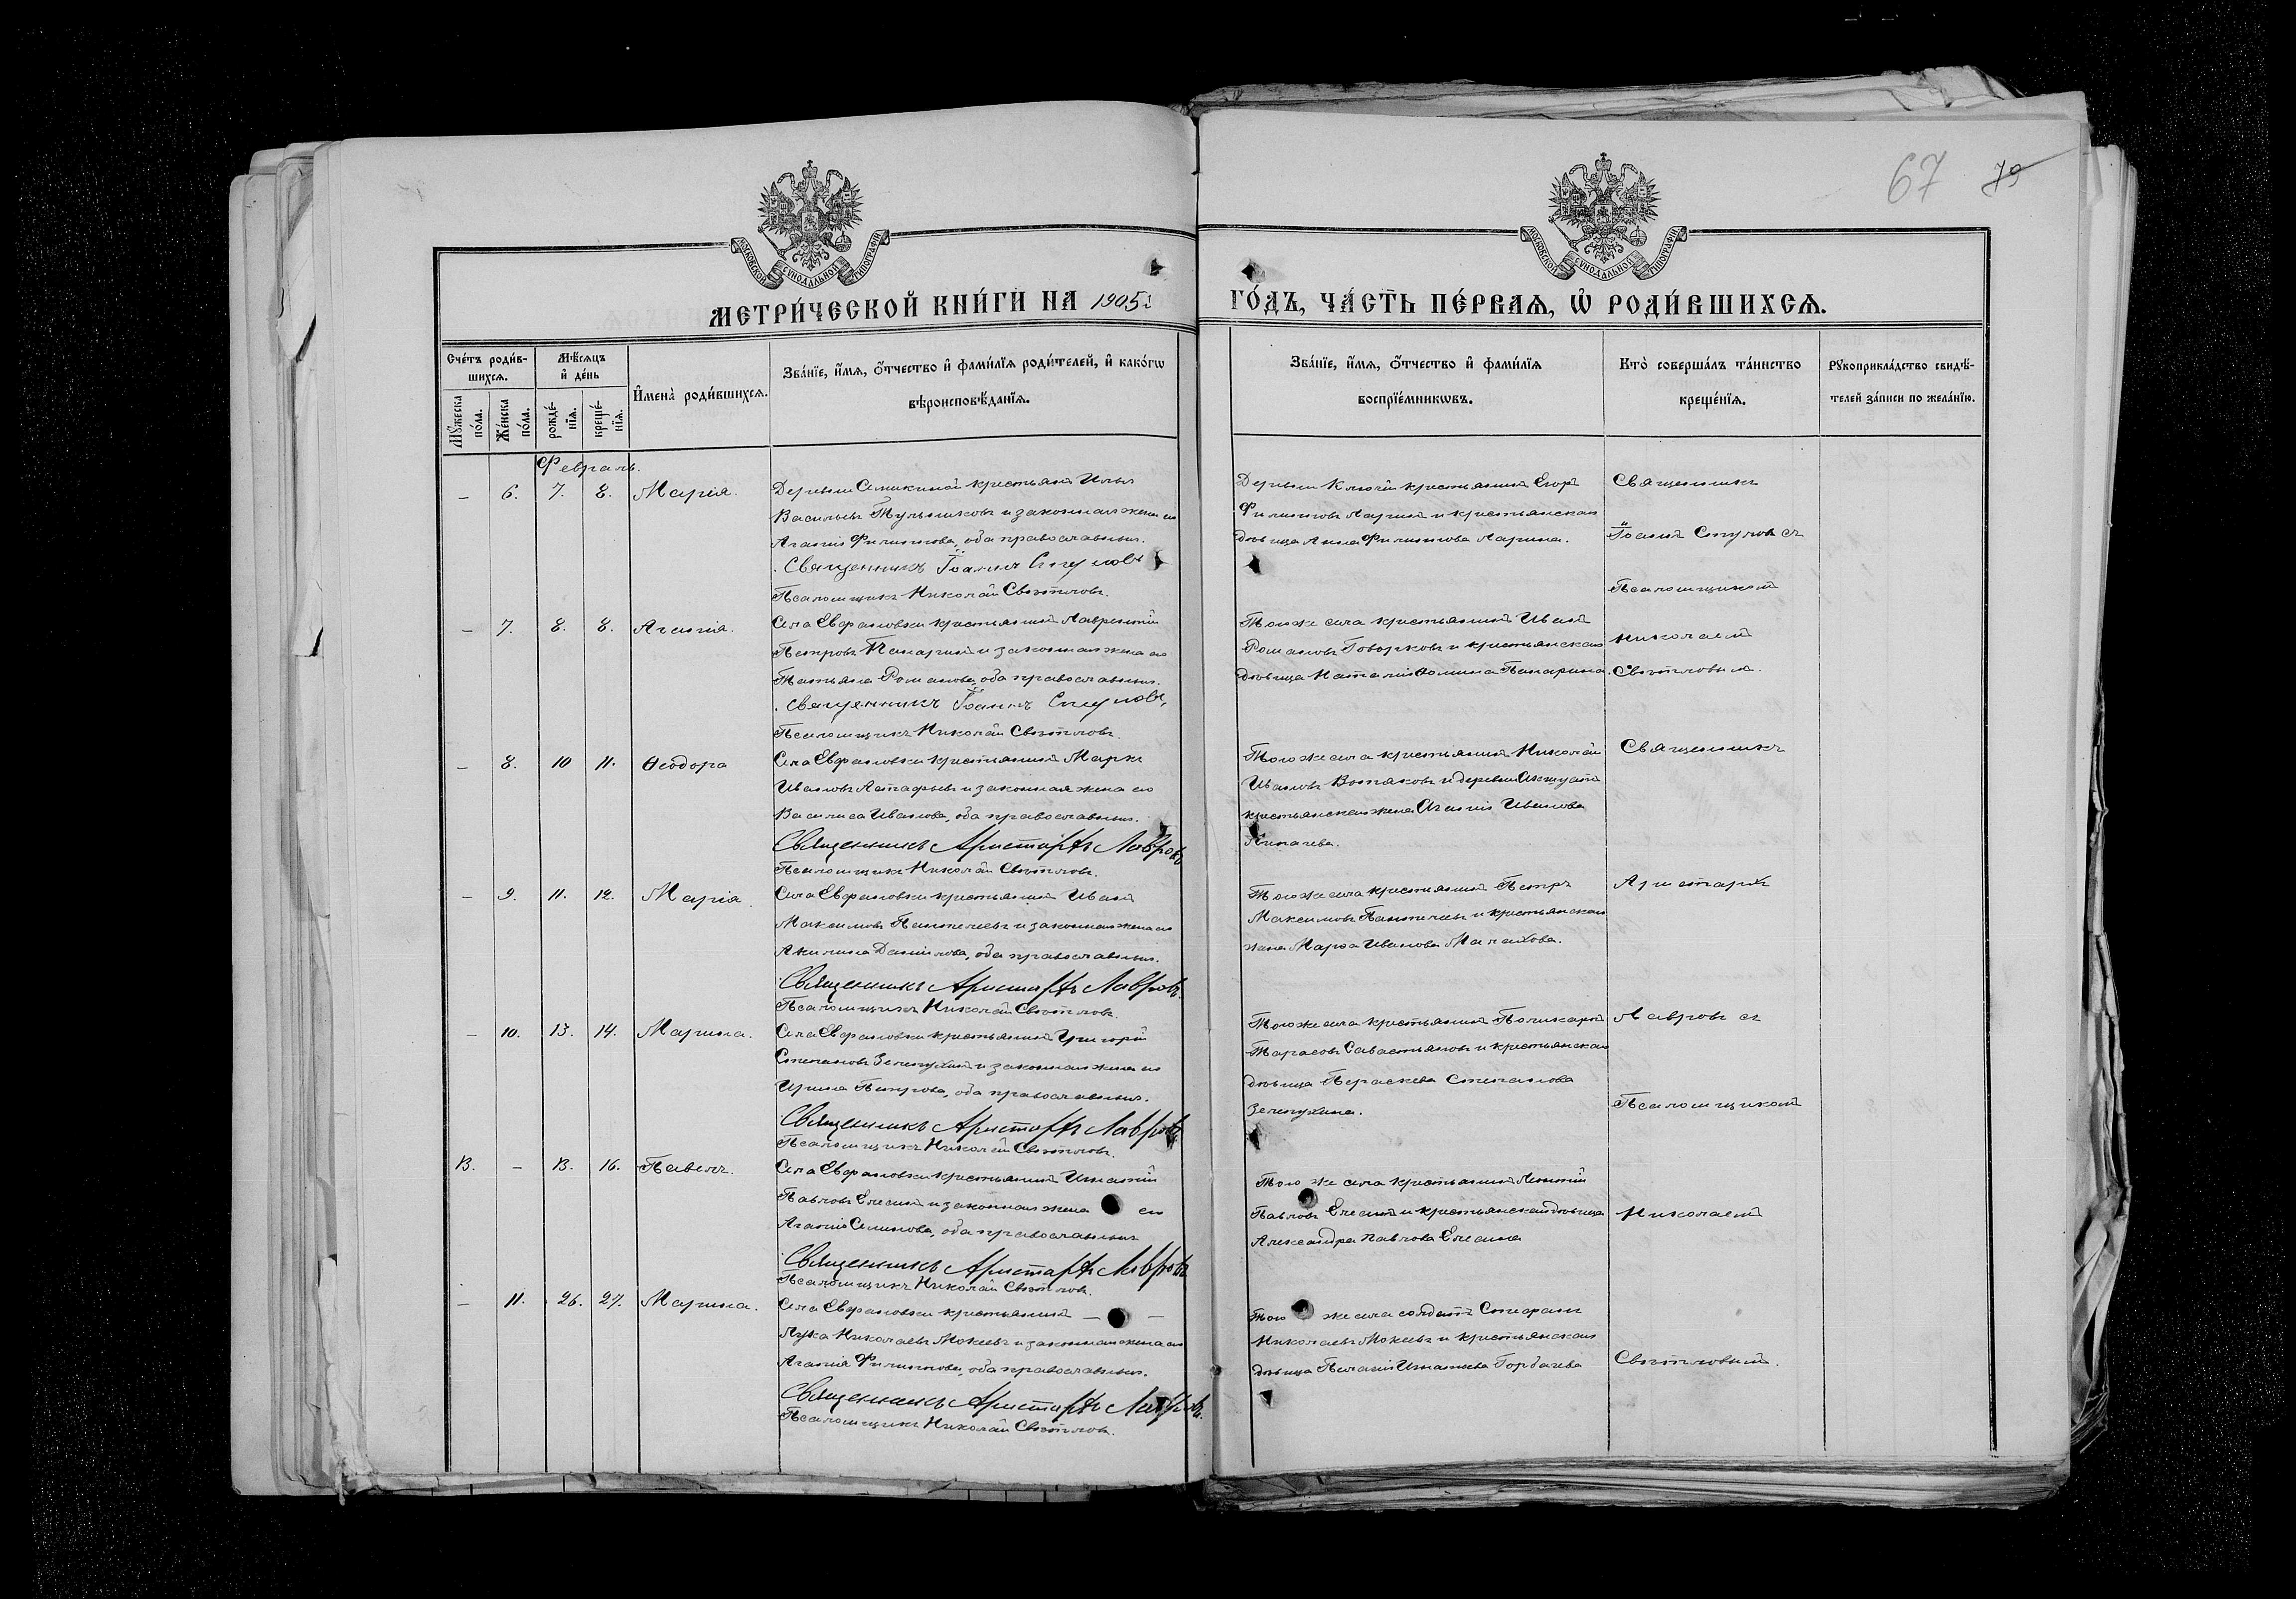 67 79
МОСКОВСКОЙ СУНОДАЛЬНОЙ ТИПОГРАФІИ
МОСКОВСКОЙ СУНОДАЛЬНОЙ ТИПОГРАФІИ
МЕТРИ́ЧЕСКОЙ КНИ́ГИ НА 1905 ГО́ДЪ, ЧА́СТЬ ПЕ́РВАѦ, Ѡ҆ РОДИ́ВШИХСѦ.
Сче́тъ роди́в-
шихсѧ.
Мꙋ́жеска по́ла.
Же́нска по́ла.
Мѣ́сѧцъ
и҆ де́нь
рожде́-
нїѧ.
креще́-
нїѧ.
И҆мена̀ роди́вшихсѧ.
Зва́нїе, и҆́мѧ, ѻ҆́тчество и҆ фами́лїѧ роди́телей, и҆ како́гѡ
вѣроисповѣ́данїѧ.
Зва́нїе, и҆́мѧ, ѻ҆́тчество и҆ фами́лїѧ
воспрїе́мникѡвъ.
Кто̀ соверша́лъ та́инство
креще́нїѧ.
Рꙋкоприкла́дство свидѣ́-
телей за́писи по жела́нїю.
Февраль.
– 6. 7. 8. Марія.
Деревни Аникиной крестьянинъ Илья
Васильевъ Тульниковъ и законная жена его
Агапія Филиппова, оба православные.
Священникъ Іоаннъ Стуловъ
Псаломщикъ Николай Свѣтловъ.
Деревни Ключи крестьянинъ Егоръ
Филипповъ Ларинъ и крестьянская
дѣвица Анна Филиппова Ларина.
Священникъ
Іоаннъ Стуловъ съ
Псаломщикомъ
– 7. 8. 8. Агапія.
Села Евфановки крестьянинъ Лаврентій
Петровъ Панаринъ и законная жена его
Татьяна Романова, оба православные.
Священникъ Іоаннъ Стуловъ,
Псаломщикъ Николай Свѣтловъ.
Того же села крестьянинъ Иванъ
Романовъ Говорковъ и крестьянская
дѣвица Наталія Ѳомина Панарина.
Николаемъ
Свѣтловымъ.
– 8. 10 11. Ѳеодора
Села Евфановки крестьянинъ Маркъ
Ивановъ Астафьевъ и законная жена его
Василиса Иванова, оба православные.
Священникъ Аристархъ Лавровъ
Псаломщикъ Николай Свѣтловъ.
Того же села крестьянинъ Николай
Ивановъ Вотяковъ и деревни
крестьянская жена Агапія Иванова
Священникъ
– 9. 11. 12. Марія.
Села Евфановки крестьянинъ Иванъ
Максимовъ Пантелеевъ и законная жена его
Акилина Данилова, оба православные.
Священникъ Аристархъ Лавровъ.
Псаломщикъ Николай Свѣтловъ.
Того же села крестьянинъ Петръ
Максимовъ Пантелеевъ и крестьянская
жена Марѳа Иванова Малахова.
Аристархъ
– 10. 13. 14. Марина.
Села Евфановки крестьянинъ Григорій
Степановъ Зелепухинъ и законная жена его
Ирина Петрова, оба православные.
Священникъ Аристархъ Лавровъ
Псаломщикъ Николай Свѣтловъ.
Того же села крестьянинъ Поликарпъ
Тарасовъ Савастьяновъ и крестьянская
дѣвица Параскева Степанова
Зелепухина.
Лавровъ съ
Псаломщикомъ
13. – 13. 16. Павелъ.
Села Евфановки крестьянинъ Игнатій
Павловъ Елесинъ и законная жена его
Агапія Семенова, оба православные
Священникъ Аристархъ Лавровъ
Псаломщикъ Николай Свѣтловъ.
Того же села крестьянинъ Леонтій
Павловъ Елесинъ и крестьянская дѣвица
Александра Павлова Елесина
Николаемъ
– 11. 26. 27. Марина.
Села Евфановки крестьянинъ – –
Лука Николаевъ Мокеевъ и законная жена его
Агапія Филиппова, оба православные.
Священникъ Аристархъ Лавровъ.
Псаломщикъ Николай Свѣтловъ.
Того же села солдатъ Стефанъ
Николаевъ Мокеевъ и крестьянская
дѣвица Пелагія Игнатьева Горбачева
Свѣтловымъ.